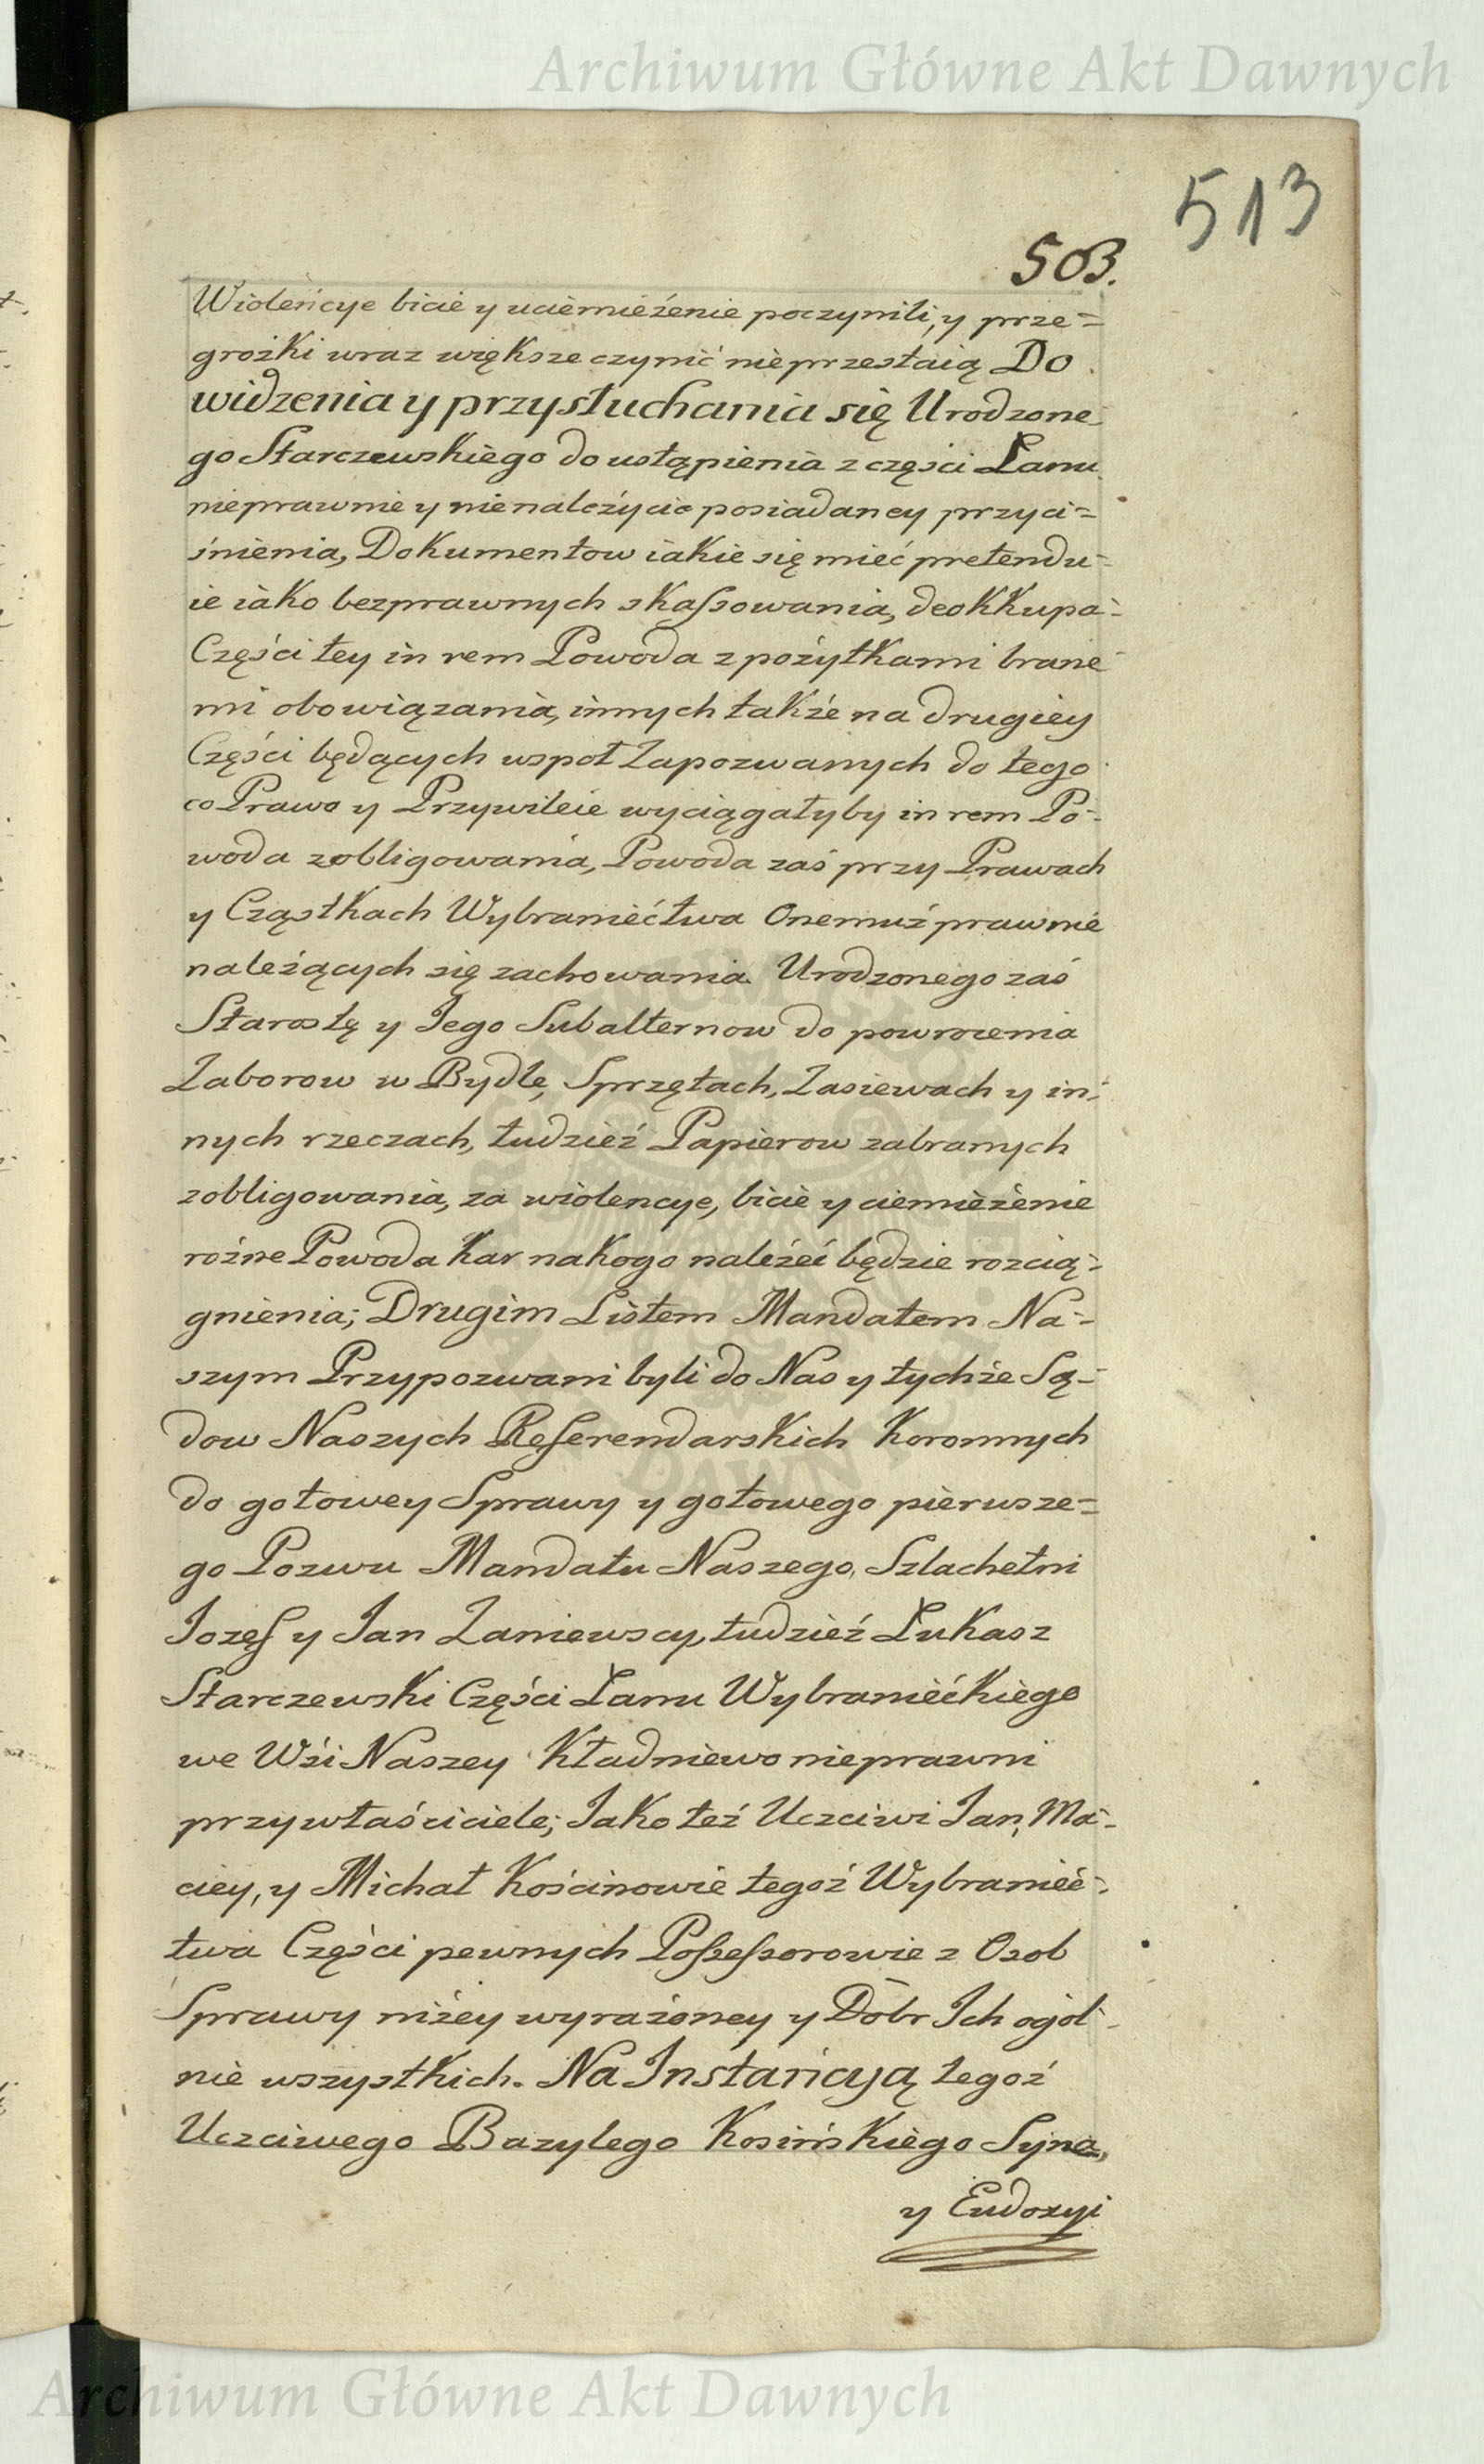 Archiwum Główne Akt Dawnych
513
503.
Wioleńcye bicie y uciemieżenie poczynili, y prze=
grożki wraz większe czynić nieprzestaią Do
widzenia y przysłuchania się Urodzone
go Starczewskiego do ustąpienia z części Łanu
nieprawnie y nienależycie posiadaney przyci=
śnienia, Dokumentow iakie się mieć pretendu=
ie iako bezprawnych skassowania, deokkupa=
Części tey in rem Powoda z pożytkami brane
mi obowiązania, innych także na drugiey
Części będących wspoł Zapozwanych do tego
co Prawo y Przywileie wyciągałyby in rem Po=
woda zobligowania, Powoda zaś przy Prawach
y Cząstkach Wybraniećtwa Onemuż prawnie
należących się zachowania. Urodzonego zaś
Starostę y Jego Subalternow do powrocenia
Zaborow w Bydle, Sprzętach, Zasiewach y in=
nych rzeczach, tudzież Papierow zabranych
zobligowania, za wiolencye, bicie y ciemieżenie
rożne Powoda kar na kogo należeć będzie rozcią=
gnienia; Drugim Listem Mandatem Na=
szym Przypozwani byli do Nas y tychże Są=
dow Naszych Referendarskich Koronnych
do gotowey Sprawy y gotowego pierwsze=
go Pozwu Mandatu Naszego, Szlachetni
Jozef y Jan Zaniewscy, tudzież Łukasz
Starczewski Części Łanu Wybraniećkiego
we Wsi Naszey Kładniewo nieprawni
przywłaściciele; Jako też Uczciwi Jan, Ma=
ciey, y Michał Kościnowie tegoż Wybranieć=
twa Części pewnych Possessorowie z Osob
Sprawy niżey wyrażoney y Dobr Ich ogol=
nie wszystkich. Na Instańcyą tegoż
Uczciwego Bazylego Kosińskiego Syna,
y Eudoxyi
Archiwum Główne Akt Dawnych